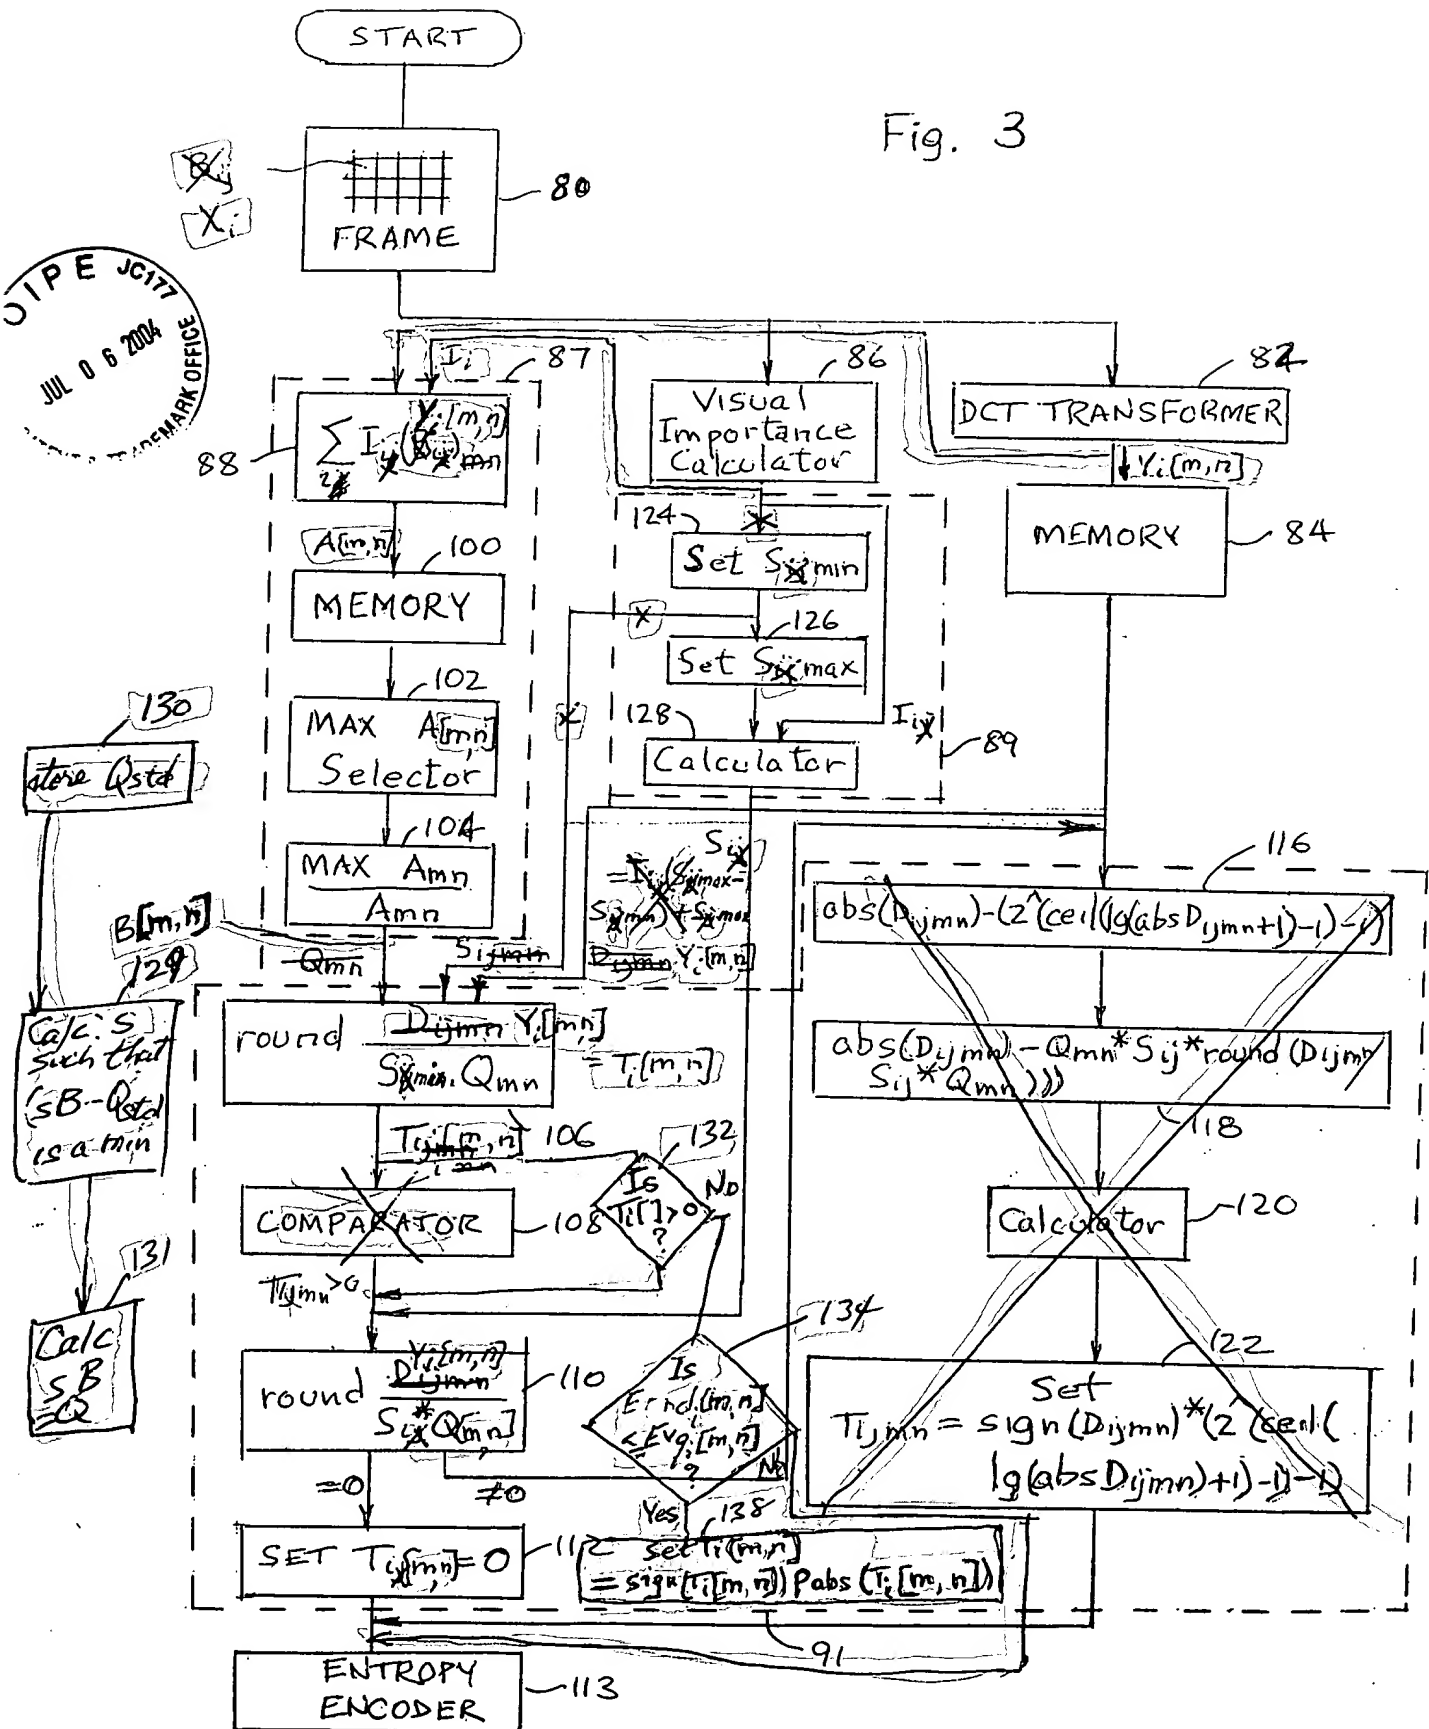 START
Fig. 3
Xi
80
FRAME
OIPE JC177
JUL 06 2004
TRADEMARK OFFICE
Ii
87
86
82
Visual
Importance
Calculator
DCT TRANSFORMER
Yi[m,n]
88
Σ I Yi[m,n]
Yi[m,n]
A[m,n]
100
MEMORY
124
Set S min
MEMORY
84
126
Set S max
102
MAX A[m,n]
Selector
128
Calculator
Ii
89
130
store Qstd
104
MAX Amn
Amn
B[m,n]
Qmn
Sijmin
Si
Dijmn Yi[m,n]
116
abs(Dijmn)-(2^(ceil(lg(absDijmn+1)-1)-1)
129
Calc. s
such that
(sB-Qstd
is a min
round Dijmn Yi[m,n]
Smin.Qmn
= Ti[m,n]
abs(Dijmn)-Qmn*Sij*round(Dijmn/
Sij*Qmn)))
118
106
132
Is
Ti[]>0
?
No
COMPARATOR
108
Calculator
120
Tijmn>0
131
Calc
sB
=Q
134
Yi[m,n]
Dijmn
round
Si*Q[m,n]
110
Is
Ernd.[m,n]
≤Evqi[m,n]
?
No
122
Set
Tijmn = sign(Dijmn)*(2^(ceil(
lg(absDijmn)+1)-1)-1)
=0
≠0
Yes
138
SET Ti[m,n]=0
112
set Ti[m,n]
=sign(Ti[m,n])Pabs(Ti[m,n])
91
ENTROPY
ENCODER
113